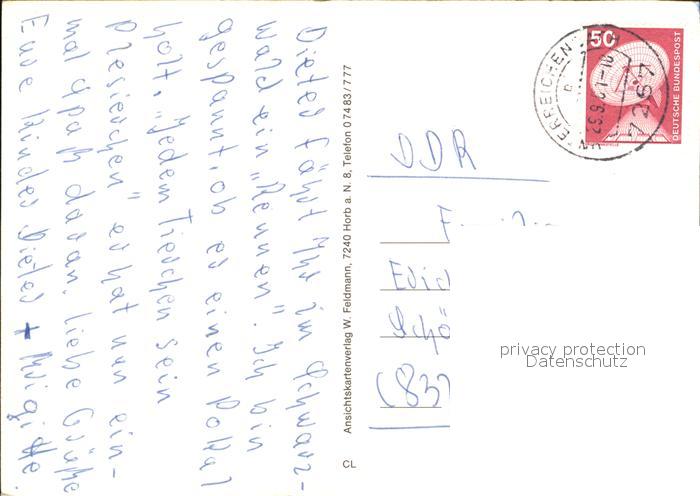 Dieter fährt Mhr im Schwarz-
wald ein „Rennen". Ich bin
gespannt, ob er einen Pokal
holt. „Jedem Tierchen sein
Plesierchen" er hat nun ein-
mal Spaß daran. Liebe Grüße
Eure Kinder Dieter + Brigitte.
Ansichtskartenverlag W. Feldmann, 7240 Horb a. N. 8, Telefon 07483/777
CL
50
DEUTSCHE BUNDESPOST
7267 UNTERREICHENBACH
DDR
(83
privacy protection
Datenschutz